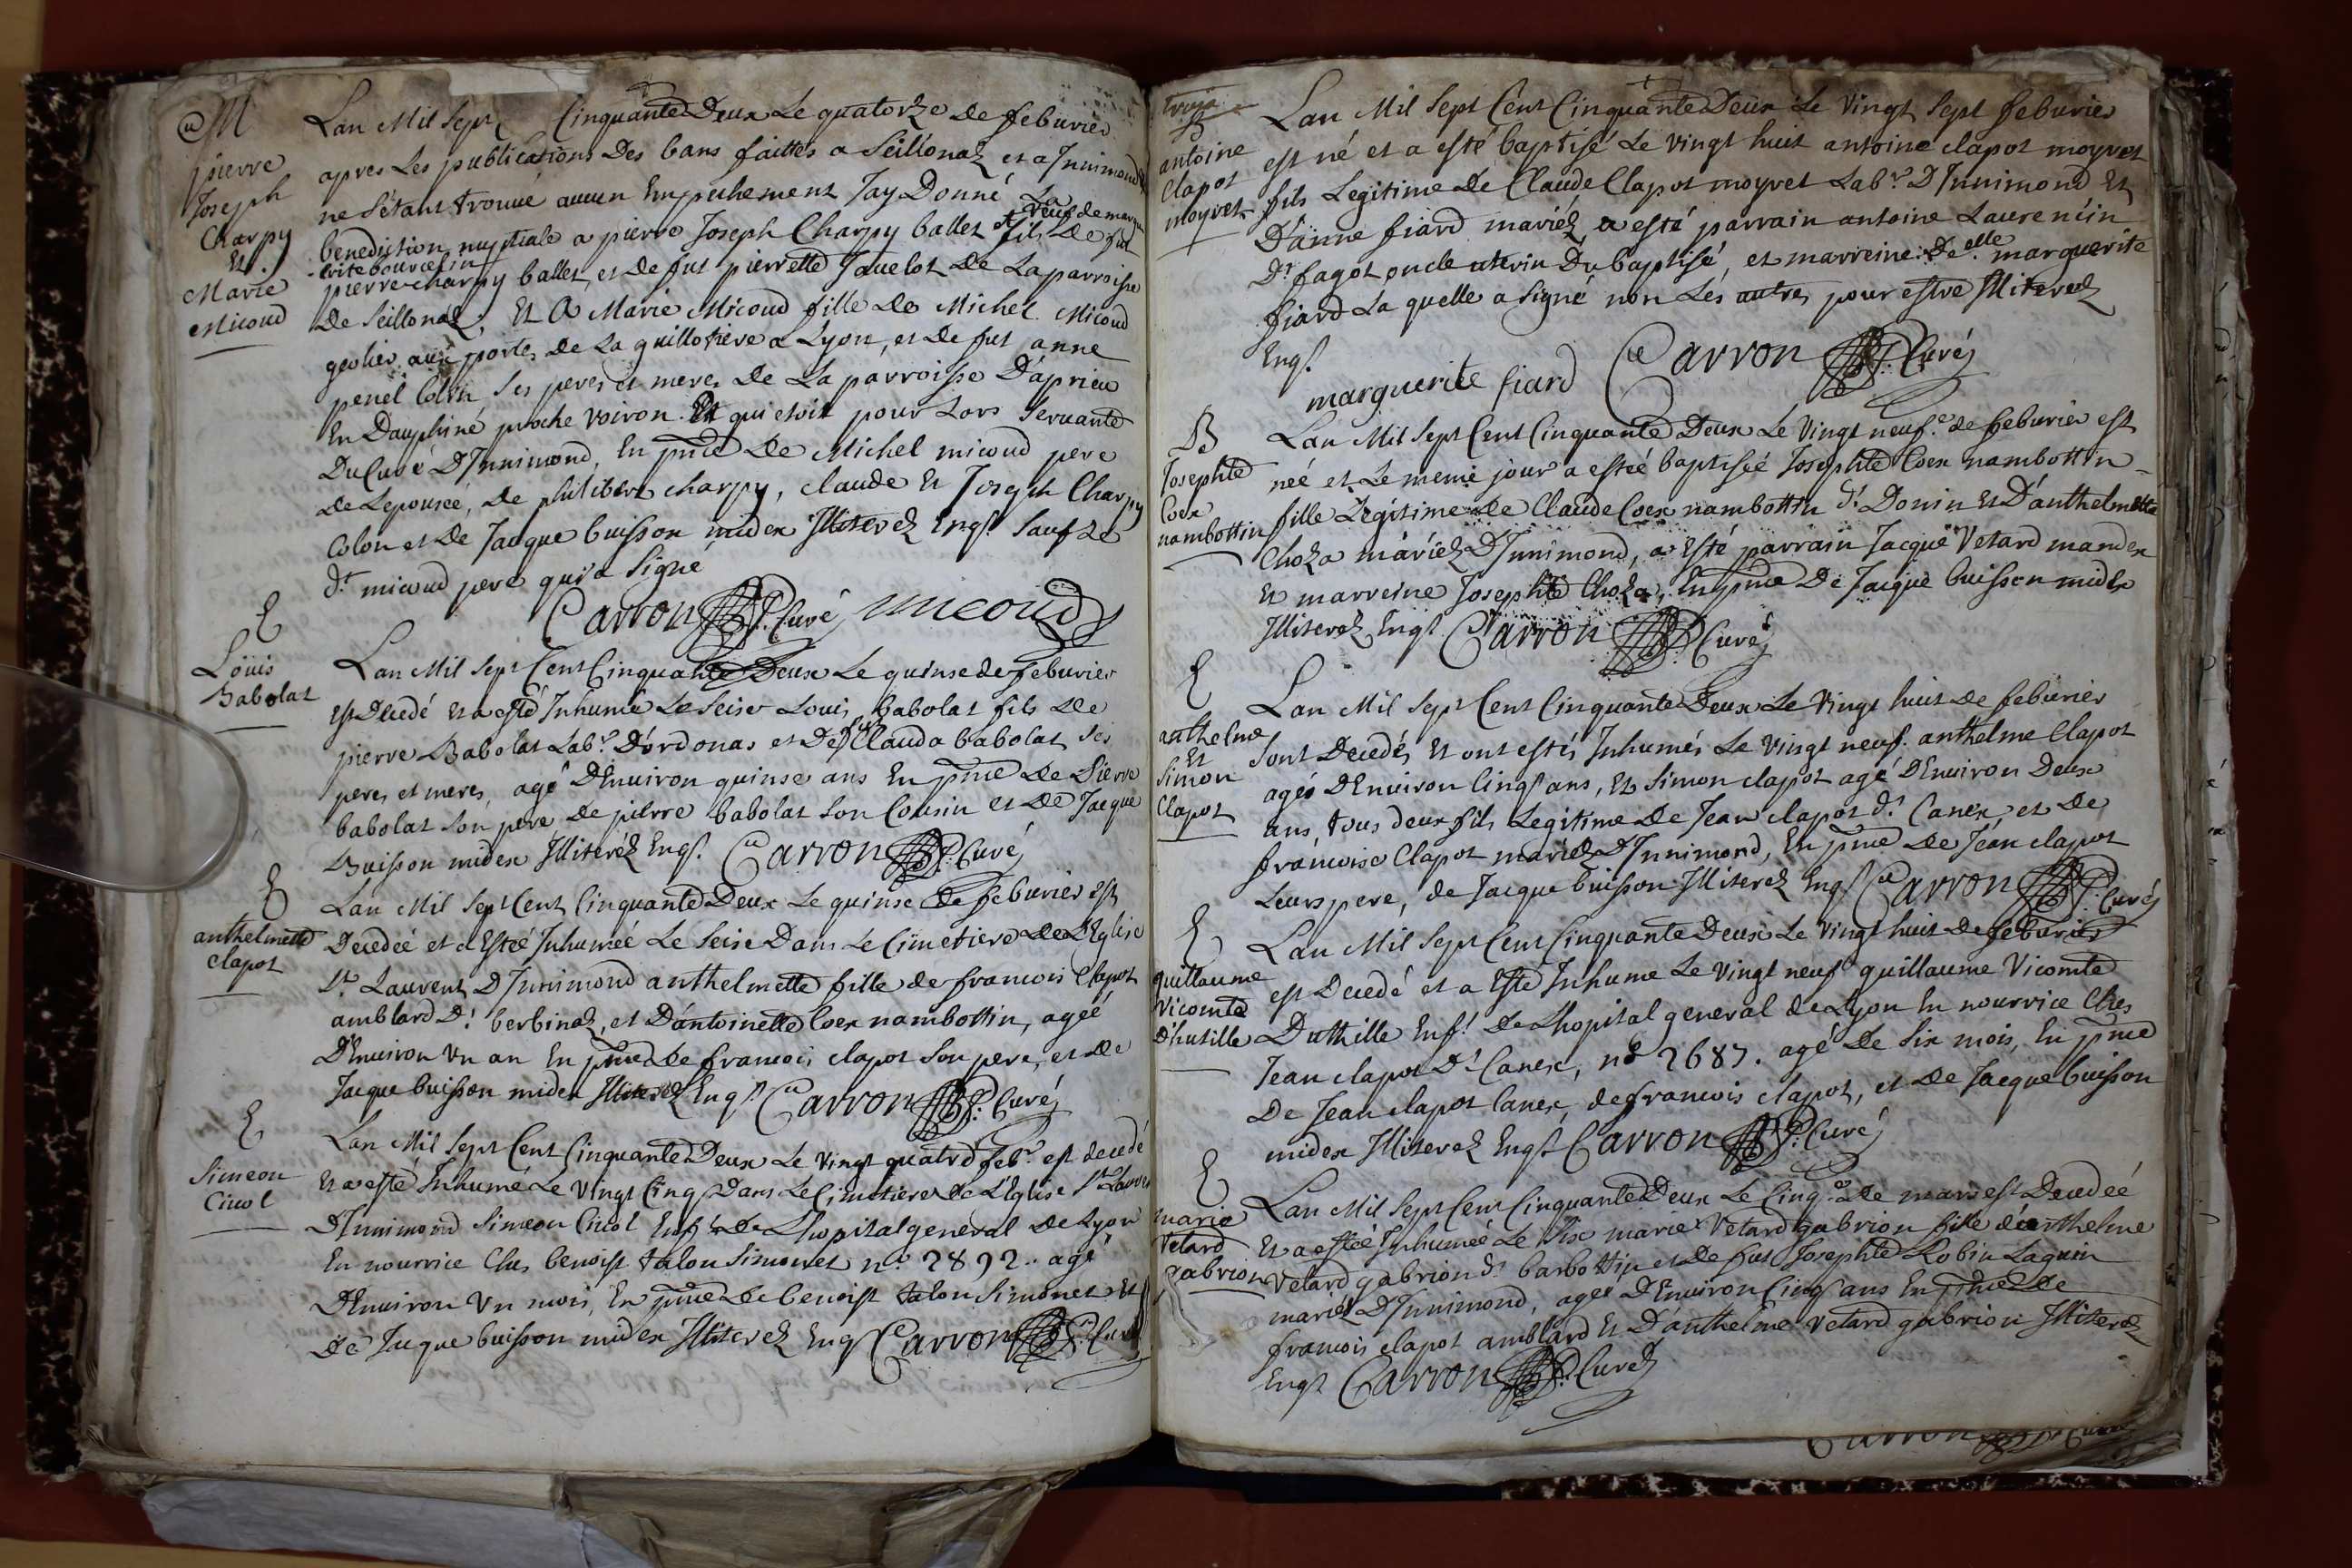 M
pierre
Joseph
Charpy
Et
Marie
Micoud
Lan Mil Sept Cinquante Deux Le quatorze de feburier
apres Les publications Des bans faittes a Seillonaz et a Innimond
ne S'étant trouvé aucun Empechement Jay Donné La
benediction nuptiale a pierre Joseph Charpy ballet veuf de mar
rite bourcelin fils de fut
pierre charpy ballet, et de fut pierrette Javelot de La parroisse
de Seillonaz, Et A Marie Micoud fille de Michel Micoud
geolier aux portes de la guillotiere a Lyon, et de fut anne
penel Colin Ses peres et meres de La parroisse D'aprieu
En Dauphiné proche Voiron. Et qui etoit pour Lors Servante
Du Curé D'Innimond, En pnce De Michel micoud pere
de Lepouseé, de philibert charpy, claude Et Joseph Charpy
Colon et De Jacque buisson midex Illiterez Enqs. Sauf Le
dt. micoud pere qui a Signé
Carron P. Curé micoud
E
Loüis
Babolat
Lan Mil Sept Cent Cinquante Deux Le quinse de feburier
est Decedé et a esté Inhumé Le Seise Louis babolat fils de
pierre Babolat Labr. Dordonas et De fut Clauda babolat Ses
peres et meres, agé D'Environ quinse ans En pnce de Pierre
babolat Son pere de pierre babolat Son Cousin et De Jacque
Buisson midex Illiteréz Enqs. Carron P. Curé
E
anthelmette
clapot
Lan Mil Sept Cent Cinquante Deux Le quinse de feburier est
Decedeé et a Esteé Inhumeé Le Seise Dans Le Cimetiere de L'Eglise
St. Laurent D'Innimond anthelmette fille de francois Clapot
amblard Dt. berbinaz, et D'antoinette Coex nambottin, ageé
D'Environ Vn an En pnce De francois clapot Son pere, et de
Jacque buisson midex Illiterez Enqs. Carron P. Curé
E
Simeon
Cicol
Lan Mil Sept Cent Cinquante Deux Le Vingt quatre febr. est decedé
Et a esté Inhumé Le Vingt Cinq Dans Le Cimetiere de L'Eglise St Lauren
D'Innimond Simeon Cicol Enft. De Lhopital general de Lyon
En nourrice Ches benoist talon Simonet no. 2892.. agé
D'Environ Vn mois, En pnce De benoist talon Simonet Et
De Jacque buisson midex Illiterez Enqs Carron P. Curé
B
antoine
Clapot
moyret
Lan Mil Sept Cent Cinquante Deux Le Vingt Sept feburier
est né et a esté baptisé Le Vingt huit antoine clapot moyret
fils Legitime de Claude Clapot moyret Labr. D'Innimond Et
D'anne fiard mariéz, a esté parrain antoine Laurencin
Dt. fagot oncle uterin Du baptisé, et marreine Delle. marguerite
fiard La quelle a Signé non Les autres pour estre Illiterez
Enqs.
marguerite fiard Carron P. Curé
B
Josephte
Coex
nambottin
Lan Mil Sept Cent Cinquante Deux Le Vingt neufe. de feburier est
née et Le meme jour a esteé baptiseé Josephte Coex nambottin
fille Legitime de Claude Coex nambottin dt. Donin Et D'anthelmette
Choza mariéz D'Innimond, a Esté parrain Jacque Vetard mandex
Et marreine Josephte Choza, En pnce De Jacque buisson midex
Illiterez Enqs Carron P. Curé
E
anthelme
Et
Simon
Clapot
Lan Mil Sept Cent Cinquante Deux Le Vingt huit de feburier
Sont Decedés Et ont estés Inhumés Le Vingt neuf. anthelme Clapot
agés D'Environ Cinq ans, Et Simon clapot agé D'Environ Deux
ans, tous deux fils Legitime de Jean clapot dt. Canex, et De
francoise Clapot mariéz D'Innimond, En pnce De Jean clapot
Leurs pere, de Jacque buisson Illiterez Enqs Carron P. Curé
E
guillaume
Vicomte
D'hutille
Lan Mil Sept Cent Cinquante Deux Le Vingt huit de feburier
est Decedé et a Esté Inhume Le Vingt neuf guillaume Vicomte
Duthille Enft. De Lhopital general de Lyon En nourrice Ches
Jean clapot Dt Canex, no 2687. agé De Six mois, En pnce
De Jean clapot Canex, de francois clapot, et De Jacque buisson
midex Illiterez Enqs Carron P. Curé
E
marie
Vetard
gabrion
Lan Mil Sept Cent Cinquante Deux Le Cinqe. De mars est Decedeé
Et a esteé Inhumeé Le Six marie Vetard gabrion fille d'anthelme
Vetard gabrion dt. barbottin et De fut Josephte Robin Laguin
mariéz D'Innimond, ageé D'Environ Cinq ans En pnce De
francois clapot amblard Et D'anthelme Vetard gabrion Illiterez
Enqs Carron P. Curé